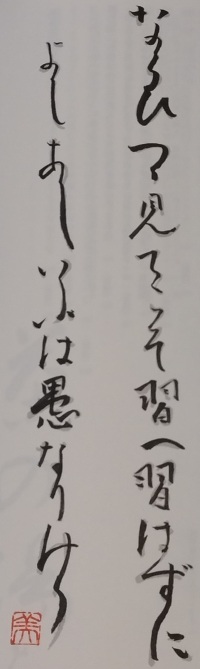 ならひつゝ見てこそ習へ習はずに
よしあしいふは愚なりけり
美